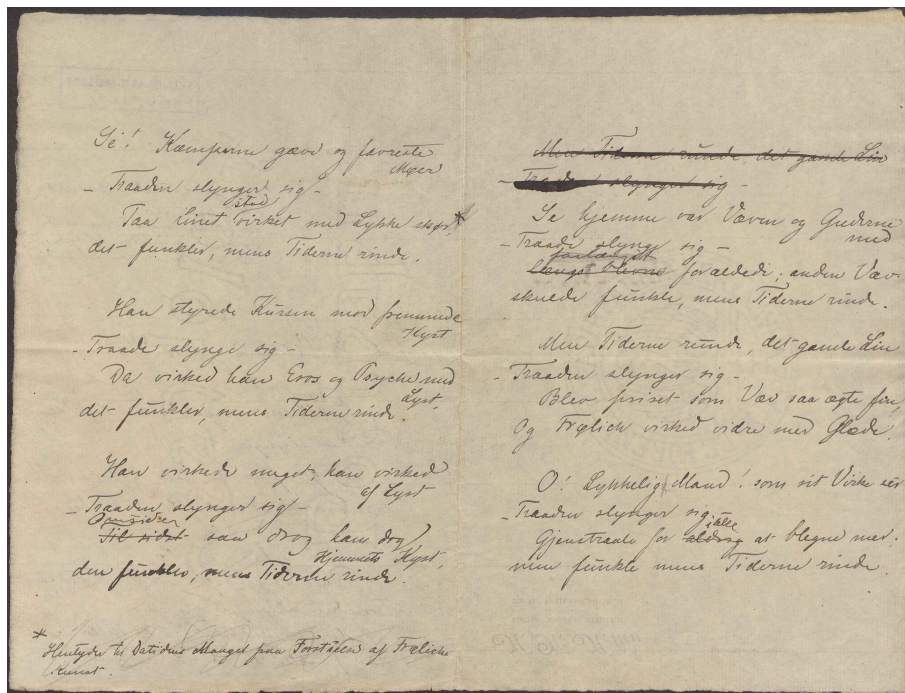 Se! Kæmperne gæve og faverste
Møer
– Traaden slynger sig –
stod
Paa Linet virket med Lykke skør, *
det funkler, mens Tiderne rinde.
Han styrede Kursen mod fremmede
Kyst
– Traade slynge sig –
Da virked han Eros og Psyche med
Lyst,
det funkler, mens Tiderne rinde.
Han virkede meget, han virked
af Lyst
– Traaden slynger sig –
Omsider
Til sidst saa drog han drog
Hjemmets Kyst,
den funkler, mens Tiderne rinde.
*
Hentyder til Datidens Mangel paa Forståelse af Frølichs
Kunst.
Men Tiderne runde det gamle Lin
– Traaden slynger sig –
Se hjemme var Væven og Guderne
med
– Traade slynge sig –
forlænget
længst blevne forældede; anden Væv
skulde funkle, mens Tiderne rinde.
Men Tiderne runde, det gamle Lin
– Traaden slynger sig –
Blev priset som Væv saa ægte fin,
Og Frølich virked vidre med Glæde.
O! Lykkelig Mand! som sit Virke ser
– Traaden slynger sig –
ikke
Gjenstraale for aldrig at blegne mer.
men funkle mens Tiderne rinde.